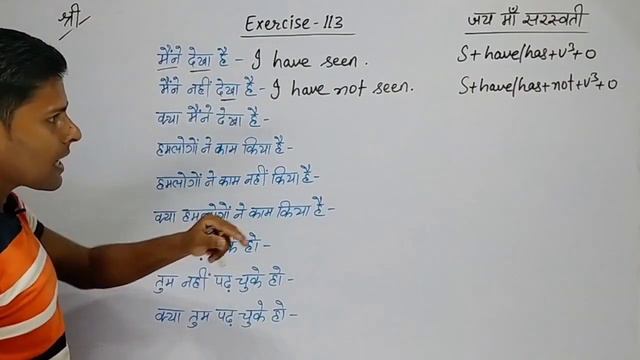 श्री
Exercise-113
जय माँ सरस्वती
मैंने देखा है - I have seen.
S+have/has+v³+o
मैंने नहीं देखा है - I have not seen.
S+have/has+not+v³+o
क्या मैंने देखा है-
हमलोगों ने काम किया है-
हमलोगों ने काम नहीं किया है-
क्या हमलोगों ने काम किया है-
हो-
तुम नहीं पढ़ चुके हो-
क्या तुम पढ़ चुके हो-